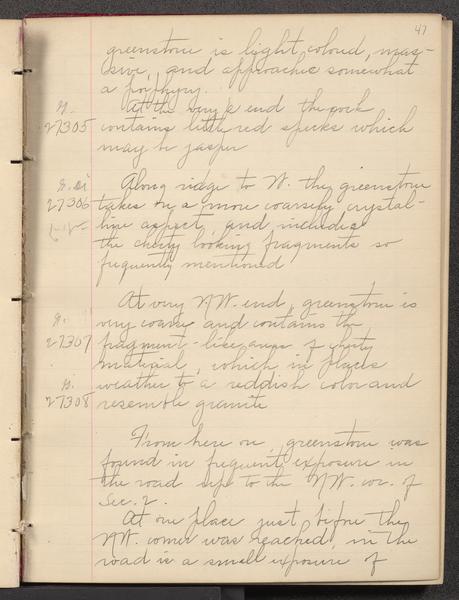 47
greenstone is light colored, mas-
sive, and approaches somewhat
a porphyry.
At the very E end the rock
27305 contains little red specks which
may be jasper
Along ridge to W. the greenstone
27306 takes on a more coarsely crystal-
line aspect, and includes
the cherty looking fragments so
frequently mentioned
At very NW. end, greenstone is
very coarse and contains the
27307 fragment-like areas of cherty
material, which in places
weather to a reddish color and
27308 resemble granite
From here on greenstone was
found in frequent exposure in
the road up to the NW. cor. of
Sec. 2.
At one place just before the
NW. corner was reached, in the
road is a small exposure of